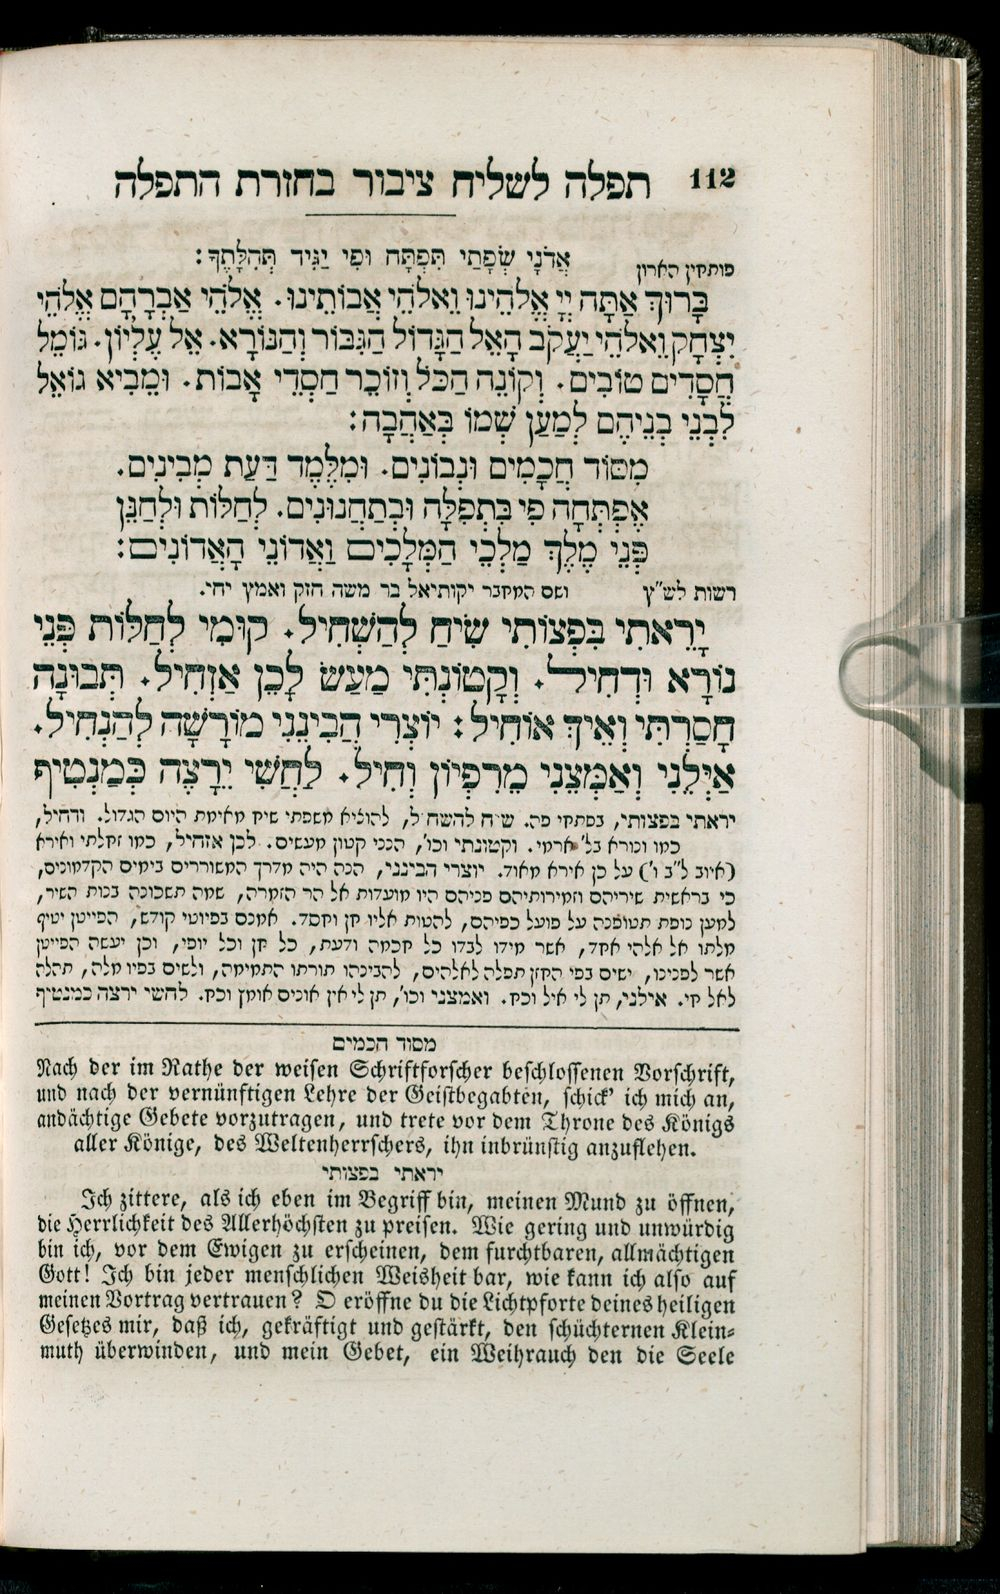 112 תפלה לשליח ציבור בחזרת התפלה
פותחין הארון אֲדֹנָי שְׂפָתַי תִּפְתָּח וּפִי יַגִּיד תְּהִלָּתֶךָ:
בָּרוּךְ אַתָּה יְיָ אֱלֹהֵינוּ וֵאלֹהֵי אֲבוֹתֵינוּ. אֱלֹהֵי אַבְרָהָם אֱלֹהֵי
יִצְחָק וֵאלֹהֵי יַעֲקֹב הָאֵל הַגָּדוֹל הַגִּבּוֹר וְהַנּוֹרָא. אֵל עֶלְיוֹן. גּוֹמֵל
חֲסָדִים טוֹבִים. וְקוֹנֵה הַכֹּל וְזוֹכֵר חַסְדֵי אָבוֹת. וּמֵבִיא גוֹאֵל
לִבְנֵי בְנֵיהֶם לְמַעַן שְׁמוֹ בְּאַהֲבָה:
מִסּוֹד חֲכָמִים וּנְבוֹנִים. וּמִלֶּמֶד דַּעַת מְבִינִים.
אֶפְתְּחָה פִּי בִּתְפִלָּה וּבְתַחֲנוּנִים. לְחַלּוֹת וּלְחַנֵּן
פְּנֵי מֶלֶךְ מַלְכֵי הַמְּלָכִים וַאֲדוֹנֵי הָאֲדוֹנִים:
רשות לש"ץ ושם המחבר יקותיאל בר משה חזק ואמץ יחי.
יָרֵאתִי בִּפְצוֹתִי שִׂיחַ לְהַשְׁחִיל. קוּמִי לְחַלּוֹת פְּנֵי
נוֹרָא וּדְחִיל. וְקָטוֹנְתִּי מַעַשׂ לָכֵן אַזְחִיל. תְּבוּנָה
חָסַרְתִּי וְאֵיךְ אוֹחִיל: יוֹצְרִי הֲבִינֵנִי מוֹרָשָׁה לְהַנְחִיל.
אַיְּלֵנִי וְאַמְּצֵנִי מֵרִפְיוֹן וְחִיל. לַחֲשִׁי יֵרָצֶה כְּמַנְטִיף
יראתי בפצותי, בפתחי פה. שיח להשחיל, להוציא משפתי שיח מאימת היום הגדול. ודחיל,
כמו ונורא בל' ארמי. וקטונתי וכו', הנני קטון מעשים. לכן אזחיל, כמו זחלתי ואירא
(איוב ל"ב ו') על כן אירא מאוד. יוצרי הבינני, הנה היה מדרך המשוררים בימים הקדמונים,
כי בראשית שיריהם וזמירותיהם פניהם היו מועדות אל הר הזמרה, שמה תשכונה בנות השיר,
למען נופת תטופנה על פועל כפיהם, להטות אליו חן וחסד. אמנם בפיוטי קודש, הפייטן יטיף
מלתו אל אלהי אחד, אשר מידו לבדו כל חכמה ודעת, כל חן וכל יופי, וכן יעשה הפייטן
אשר לפנינו, ישים בפי החזן תפלה לאלהים, להבינהו תורתו התמימה, ולשים בפיו מלה, תהלה
לאל חי. אילני, תן לי איל וכח. ואמצני וכו', תן לי אין אונים אומץ וכח. לחשי ירצה כמנטיף
מסוד חכמים
Nach der im Rathe der weisen Schriftforscher beschlossenen Vorschrift,
und nach der vernünftigen Lehre der Geistbegabten, schick' ich mich an,
andächtige Gebete vorzutragen, und trete vor dem Throne des Königs
aller Könige, des Weltenherrschers, ihn inbrünstig anzuflehen.
יראתי בפצותי
Ich zittere, als ich eben im Begriff bin, meinen Mund zu öffnen,
die Herrlichkeit des Allerhöchsten zu preisen. Wie gering und unwürdig
bin ich, vor dem Ewigen zu erscheinen, dem furchtbaren, allmächtigen
Gott! Ich bin jeder menschlichen Weisheit bar, wie kann ich also auf
meinen Vortrag vertrauen? O eröffne du die Lichtpforte deines heiligen
Gesetzes mir, daß ich, gekräftigt und gestärkt, den schüchternen Klein-
muth überwinden, und mein Gebet, ein Weihrauch den die Seele